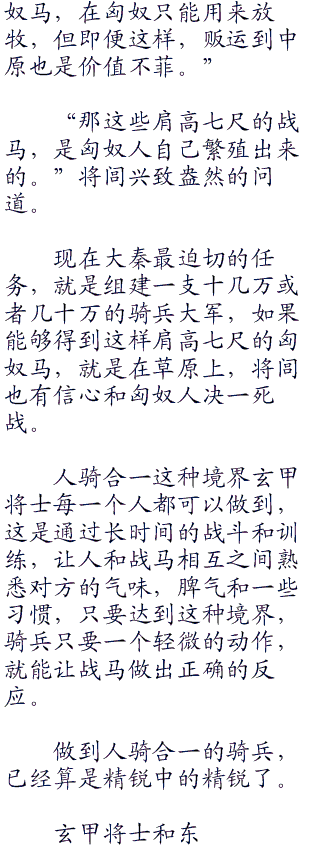 奴马，在匈奴只能用来放
牧，但即便这样，贩运到中
原也是价值不菲。”
“那这些肩高七尺的战
马，是匈奴人自己繁殖出来
的。”将闾兴致盎然的问
道。
现在大秦最迫切的任
务，就是组建一支十几万或
者几十万的骑兵大军，如果
能够得到这样肩高七尺的匈
奴马，就是在草原上，将闾
也有信心和匈奴人决一死
战。
人骑合一这种境界玄甲
将士每一个人都可以做到，
这是通过长时间的战斗和训
练，让人和战马相互之间熟
悉对方的气味，脾气和一些
习惯，只要达到这种境界，
骑兵只要一个轻微的动作，
就能让战马做出正确的反
应。
做到人骑合一的骑兵，
已经算是精锐中的精锐了。
玄甲将士和东